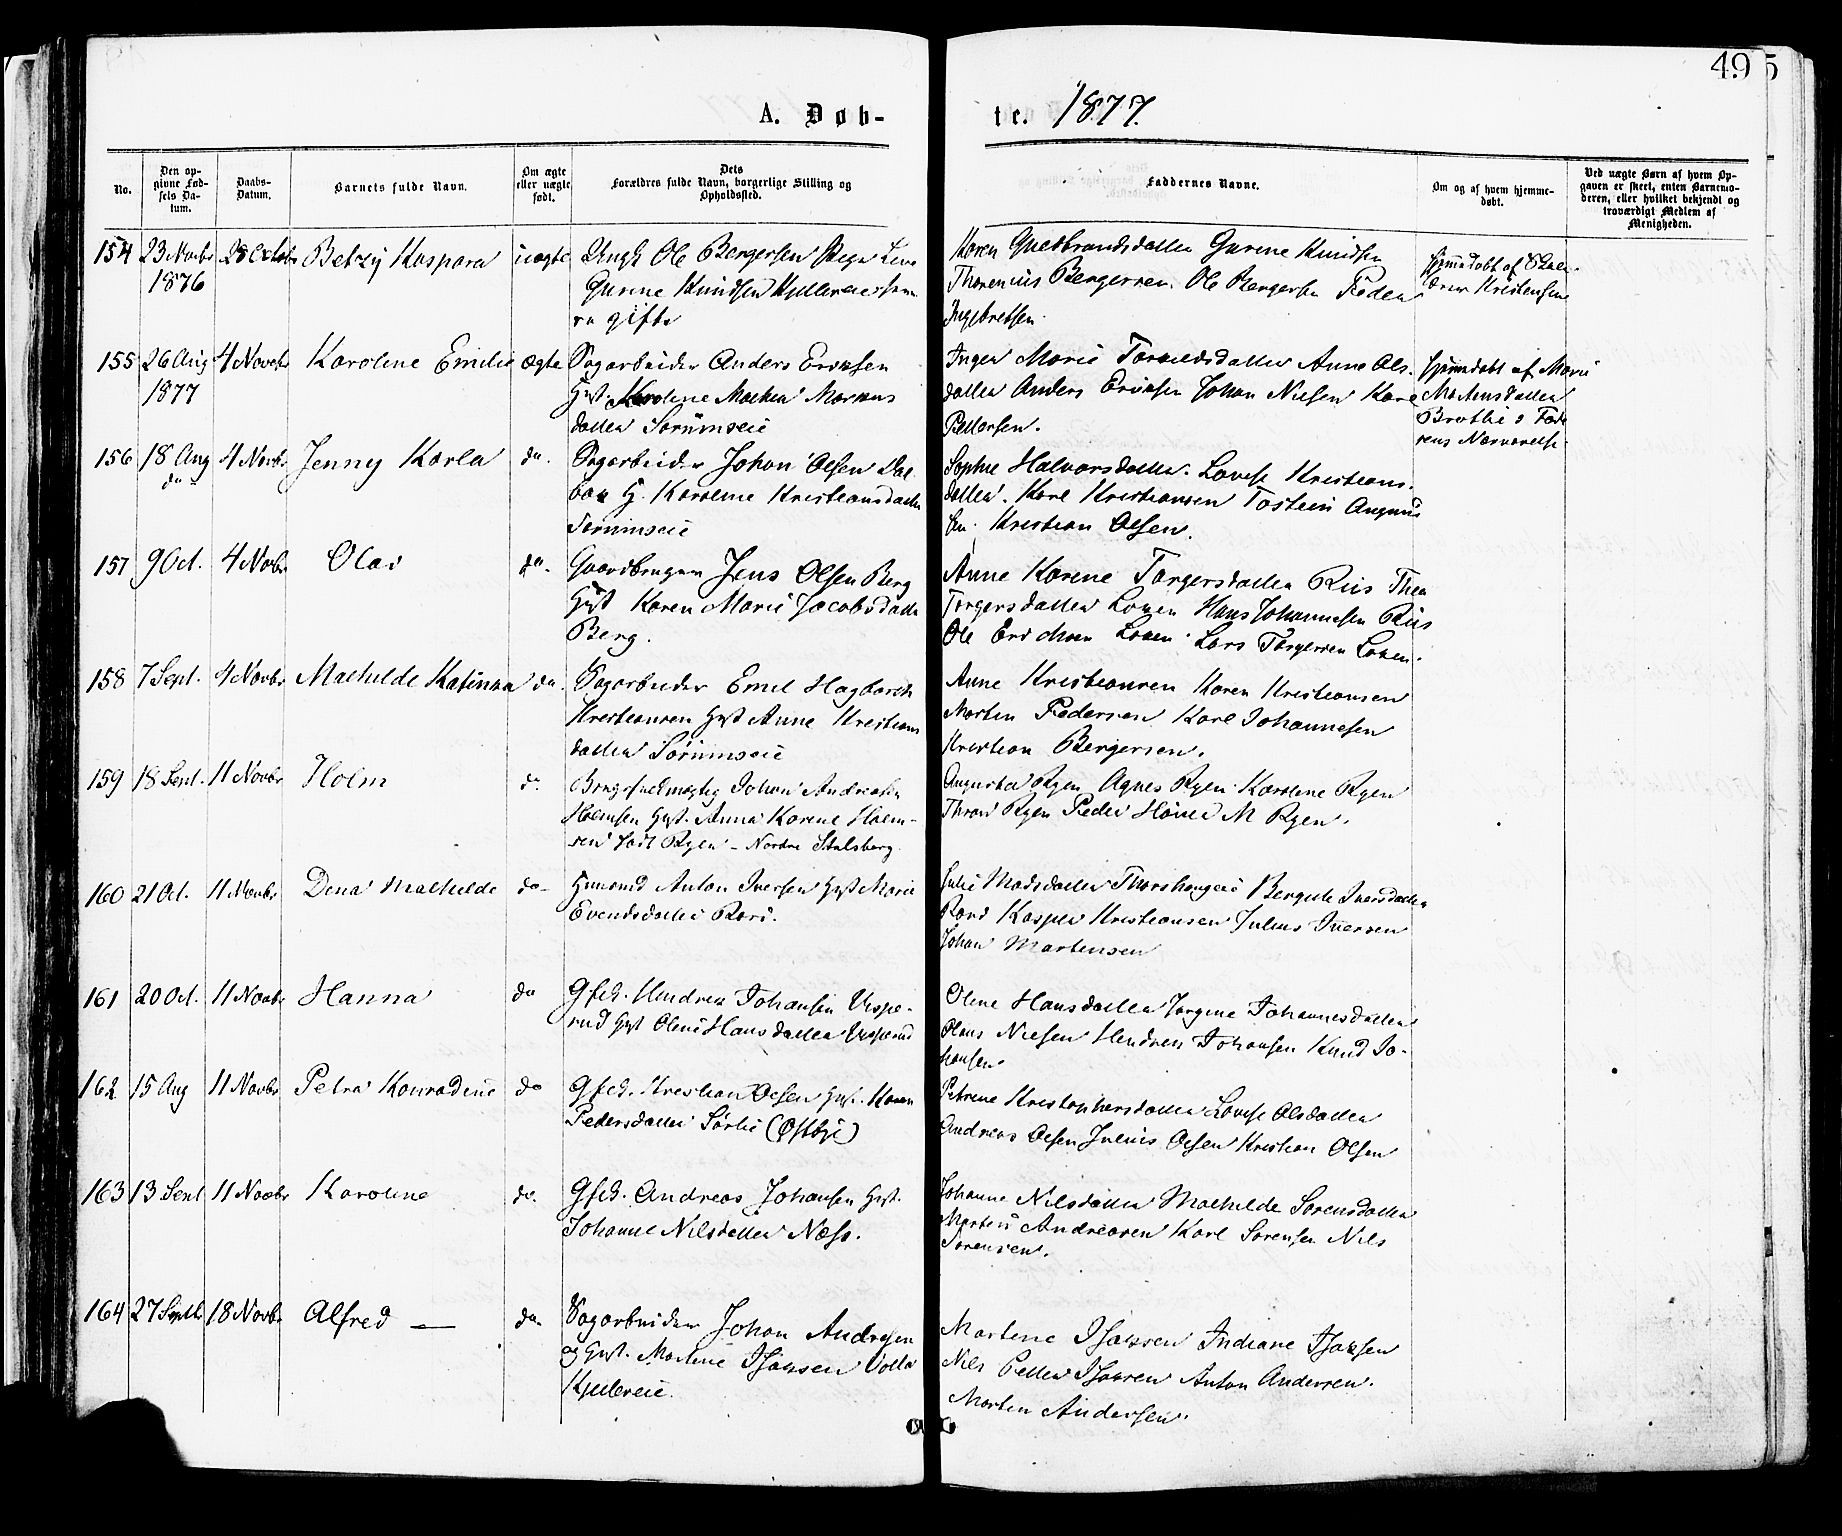 49 5
A. Døb-
te. 1877.
No.
Den op-
givne Fød-
sels Da-
tum.
Daabs-
Datum.
Barnets fulde Navn.
Om ægte
eller uægte
født.
Dets
Forældres fulde Navn, borgerlige Stilling og
Opholdssted.
Faddernes Navne.
Om og af hvem hjemme-
døbt.
Ved uægte Børn af hvem Op-
gaven er skeet, enten Barnemo-
deren, eller hvilket bekjendt og
troværdigt Medlem af
Menigheden.
154 23 Novbr 28 Octobr Betzy Kaspara uægte Ungk Ole Bergersen Pige
1876 Gurine Knudsen
gifte
Karen Gulbrandsdatter Gurine Knudsen
Thorenius Bergersen. Ole Bergersen Peder
Ingebretsen.
hjemdøbt af
Kristensen
155 26 Aug 4 Novbr Karoline Emilie ægte Sagarbeider Anders Eriksen
1877 Hust. Karoline Mathea Markus
datter Sørumseie
Inger Marie Anne Ols-
datter Anders Eriksen Johan Nielsen Kare
Pettersen.
hjemdøbt af Marie
Martinsdatter
Brothie i Fade
rens Nærværelse.
156 18 Aug 4 Novbr Jenny Karla do. Sagarbeider Johan Olsen Dal
do H. Karoline Kristiansdatter
Sørumseie
Sophie Halvorsdatter. Lovise Kristians-
datter. Karl Kristiansen Tostein
sen. Kristian Olsen.
157 9 Oct. 4 Novbr Olai do. Gaardbruger Jens Olsen Berg
Hust Karen Marie Jacobsdatter
Berg.
Anne Karine Torgersdatter Riis Thea
Torgersdatter Hans Johannesen Riis
Ole Lars Torgersen
158 7 Sept. 4 Novbr Mathilde Katinka do. Sagarbeider Emil Hagbarth
Kristiansen Hust Anne Kristians
datter Sørumseie
Anne Kristiansen Karen Kristiansen
Morten Pedersen Karl Johannesen
Kristian Bergersen.
159 18 Sept. 11 Novbr Holm do. Brugsfuldmægtig Johan Andreasen
Holmsen Hust. Anna Karine Holm-
sen født Ryen - Nordre Stalsberg
Augusta Ryen Agnes Ryen Karoline Ryen
Thron Ryen Peder M Ryen.
160 21 Oct. 11 Novbr Dina Mathilde do- Husmd Anton Iversen Hust Marie
Evendsdatter
Julie Madsdatter Bergitte Iversdatter
Kasper Kristiansen Julius Iversen
Johan Martinsen
161 20 Oct. 11 Novbr Hanna do Gfed. Hendrik Johansen
Hust Oline Hansdatter
Oline Hansdatter Jorgine Johannesdatter
Hans Nielsen Hendrik Johansen Knud Jo-
hansen.
162 15 Aug 11 Novbr Petra Konradine do Gfed. Kristian Olsen Hust. Karen
Pedersdatter Sørlie (Østbye)
Petrine Kristophersdatter Lovise Olsdatter
Andreas Olsen Julius Olsen Kristian Olsen
163 13 Sept 11 Novbr Karoline do. Gfed. Andreas Johansen Hust.
Johanne Nilsdatter Næss.
Johanne Nilsdatter Mathilde Sorensdatter
Andreasen Karl Sorensen Nils
Sorensen.
164 27 Septbr 18 Novbr Alfred do. Sagarbeider Johan Andersen
og Hust. Martine Isaksen Volla
Kjellereie.
Martine Isaksen Indiane Isaksen
Nils Petter Isaksen Anton Andersen.
Morten Andersen.